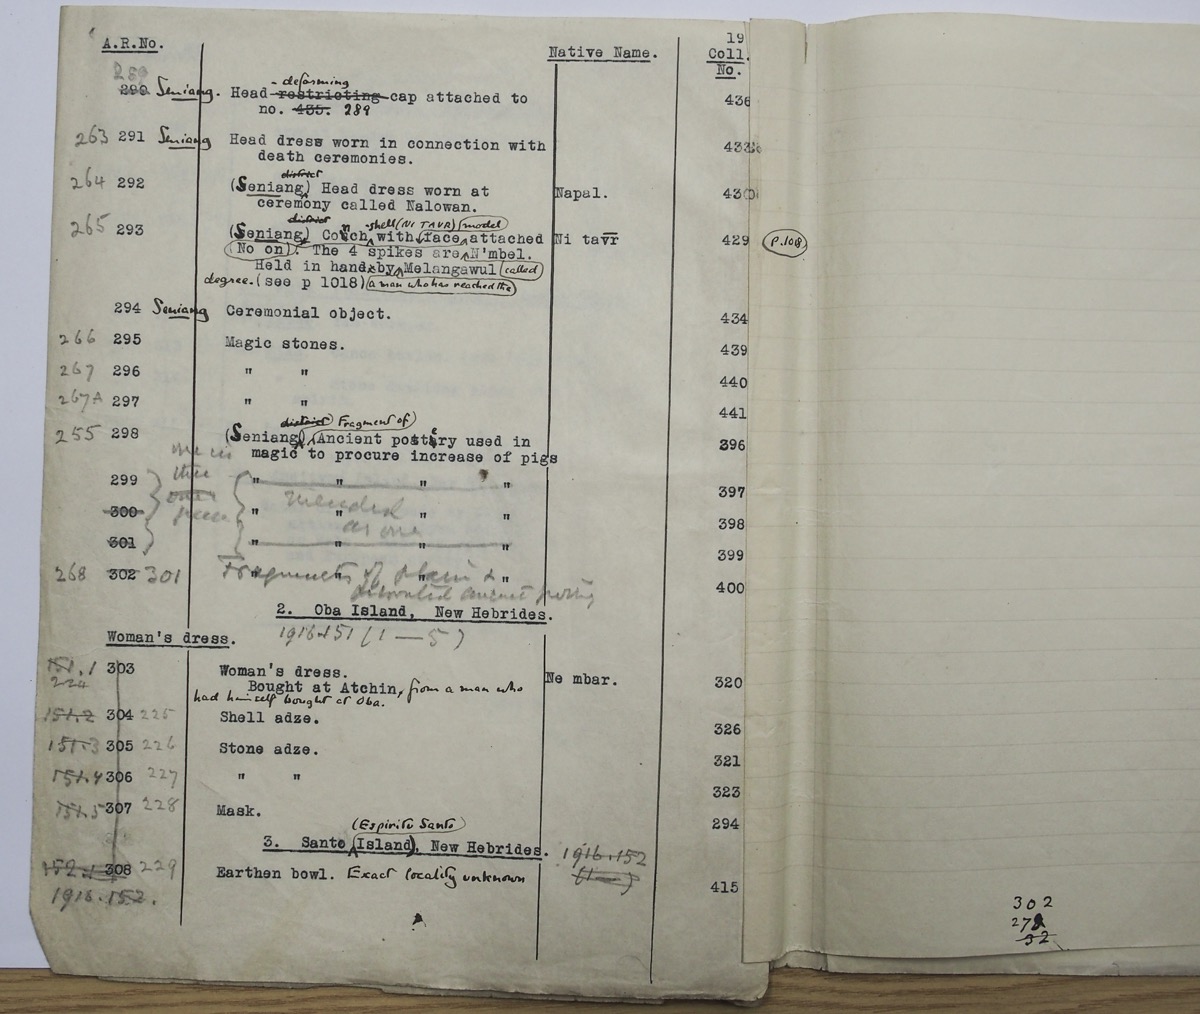 A.R.No. Native Name. 19
Coll.
No.
289 - deforming
290 Seniang. Head restricting cap attached to 436
no. 435. 289
263 291 Seniang Head dress worn in connection with 433
death ceremonies.
district
264 292 (Seniang) Head dress worn at Napal. 430
ceremony called Nalowan.
district -shell (NI TAVR) (model
265 293 (Seniang) Conch with face attached Ni tavr 429 P.108
(No on). The 4 spikes are N'mbel.
Held in hand by Melangawul (called
degree. (see p 1018) (a man who has reached the
294 Seniang Ceremonial object. 434
266 295 Magic stones. 439
267 296 " " 440
267A 297 " " 441
district Fragment of)
255 298 (Seniang) Ancient pottery used in 396
one in magic to procure increase of pigs
299 three " " " " " 397
300 piece " mended " " " 398
as one
301 " " " " 399
268 302 301 Fragments of plain & " " 400
decorated ancient pottery
2. Oba Island, New Hebrides.
Woman's dress. 1916.151 (1 — 5)
151.1 303 Woman's dress. Ne mbar. 320
224 Bought at Atchin, from a man who
had himself bought at Oba.
151.2 304 225 Shell adze. 326
151.3 305 226 Stone adze. 321
151.4 306 227 " " 323
151.5 307 228 Mask. 294
(Espiritu Santo)
3. Santo (Island), New Hebrides. 1916.152
152.1 308 229 Earthen bowl. Exact locality unknown (1—) 415
1916.152.
302
278
32